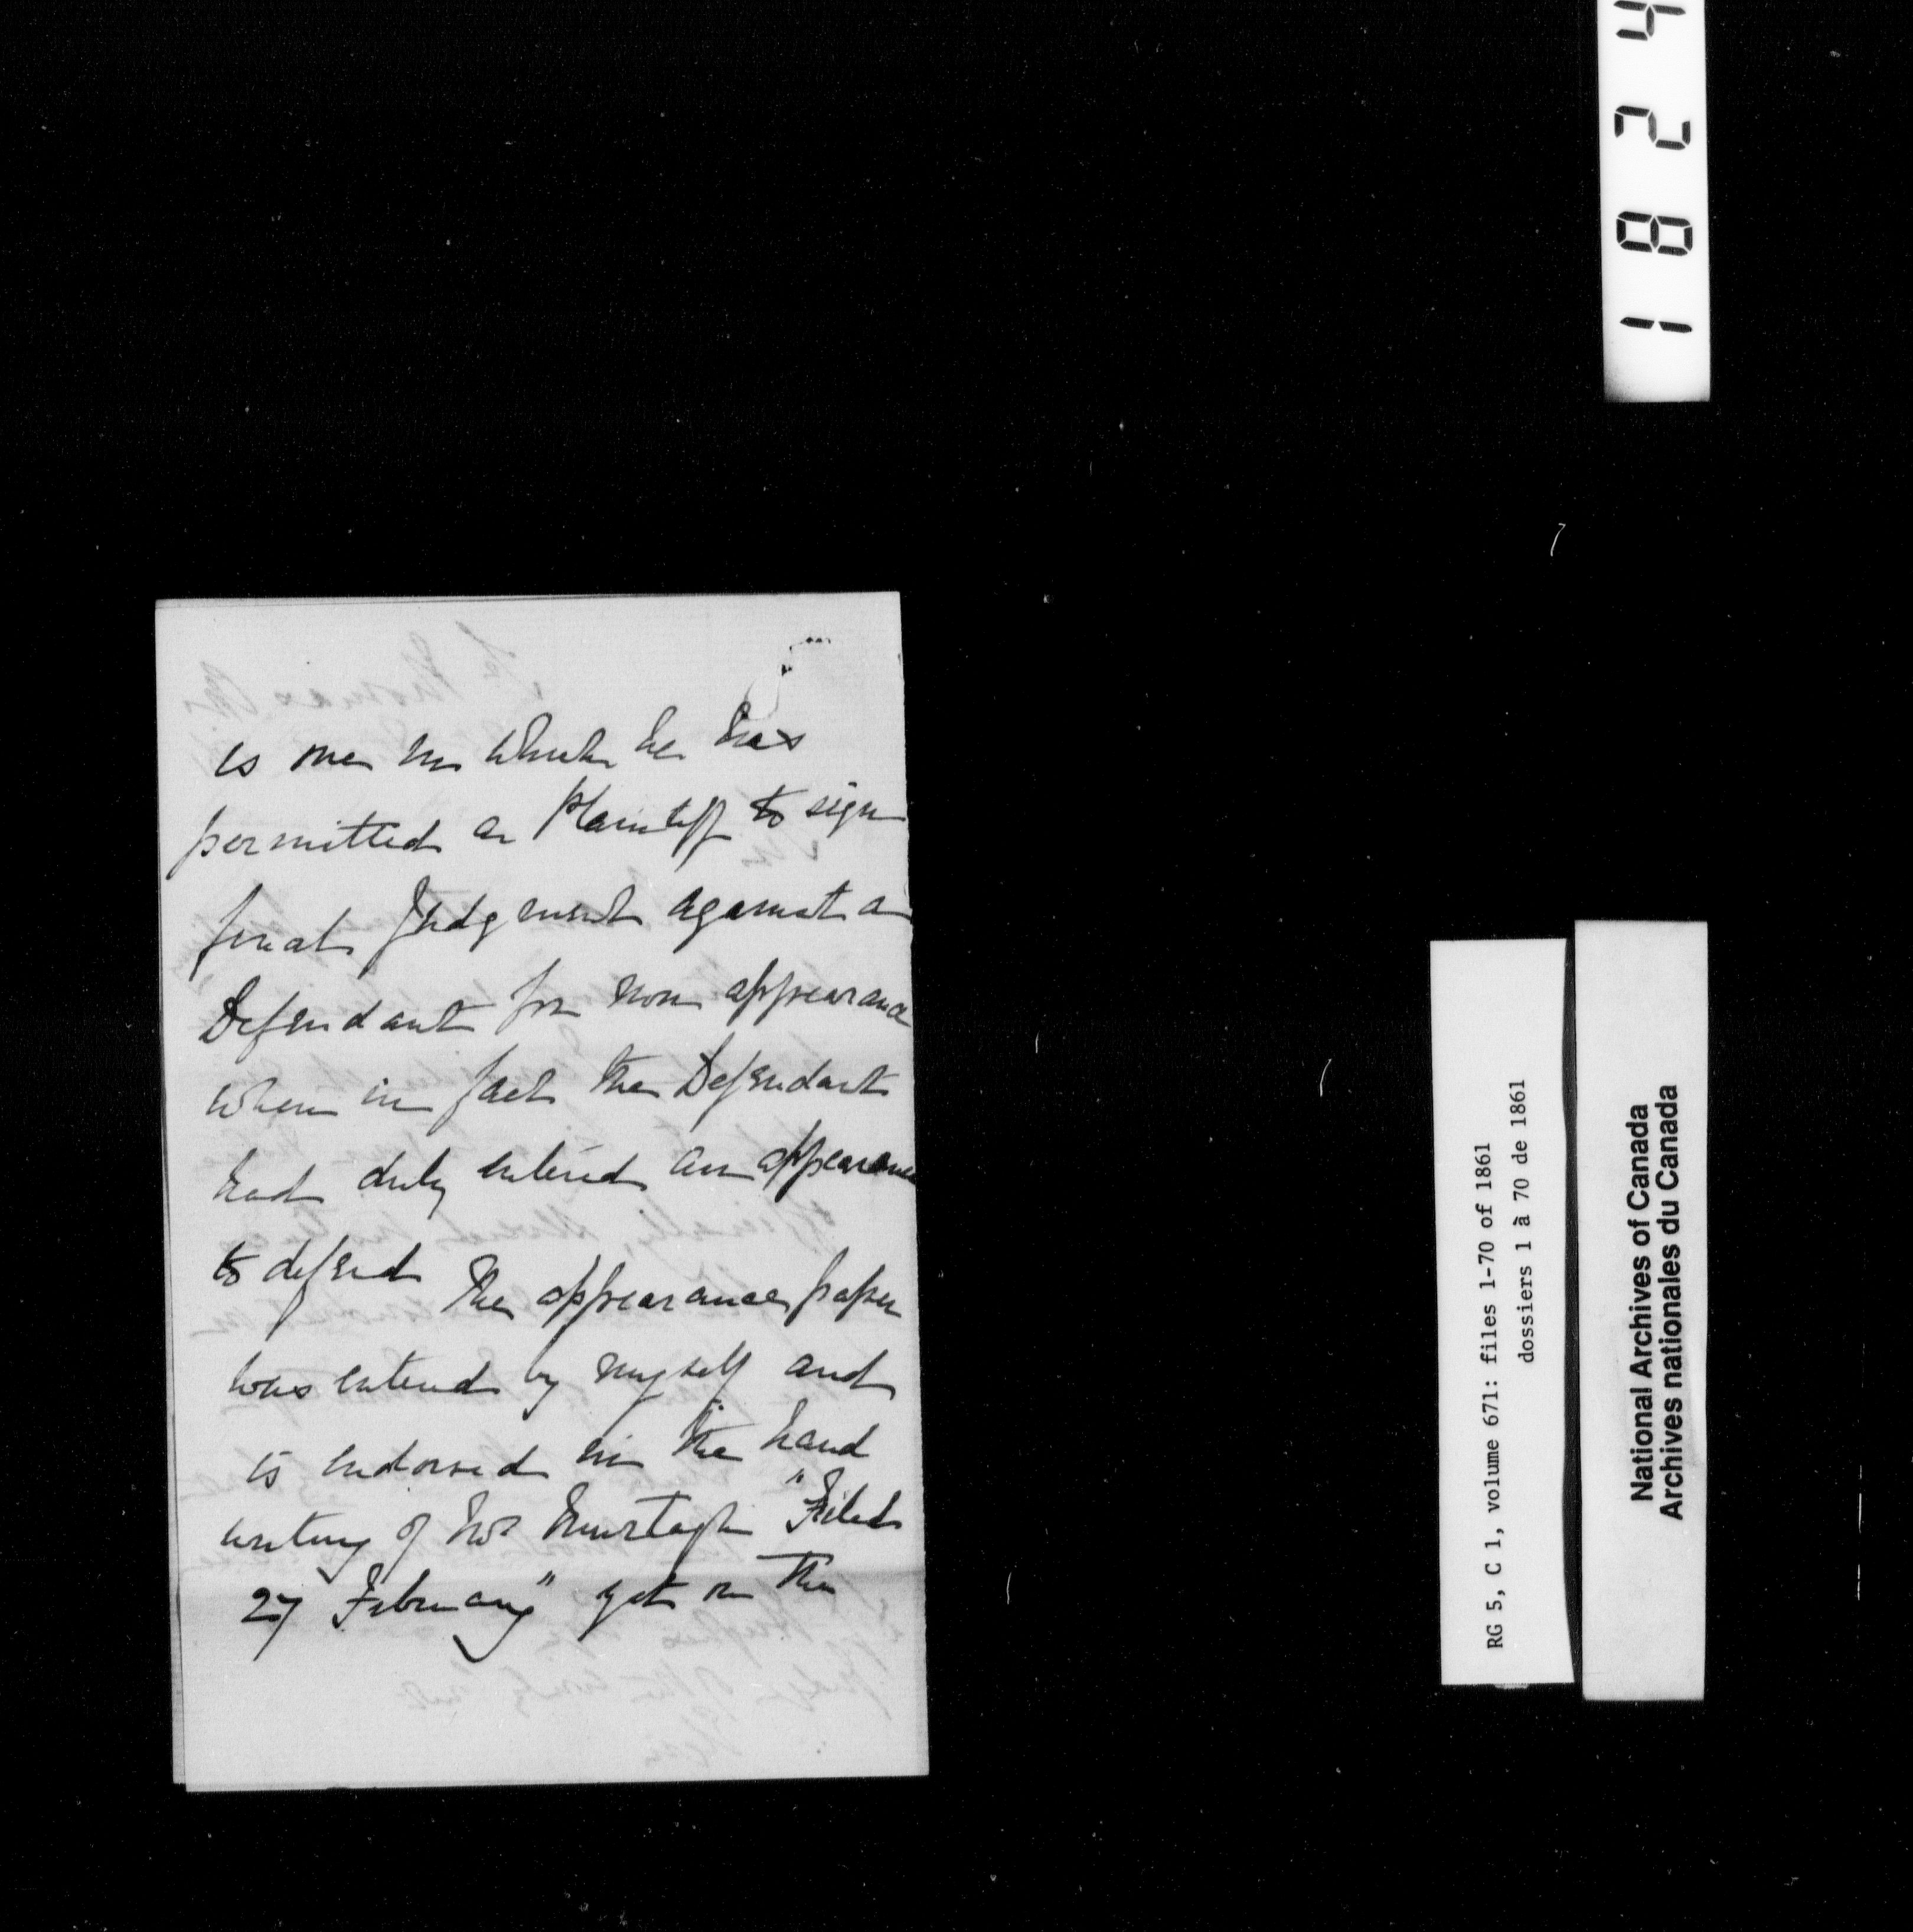 is one in which he has
permitted a Plaintiff to sign
final Judgment against a
Defendant for non appearance
when in fact the Defendant
had duly entered an appearance
to defend The appearance paper
was entered by myself and
is endorsed in the hand
writing of Mr Murtagh "Filed
27 February" yet on the
1 8 2 4
RG 5, C 1, volume 671: files 1-70 of 1861
dossiers 1 à 70 de 1861
National Archives of Canada
Archives nationales du Canada